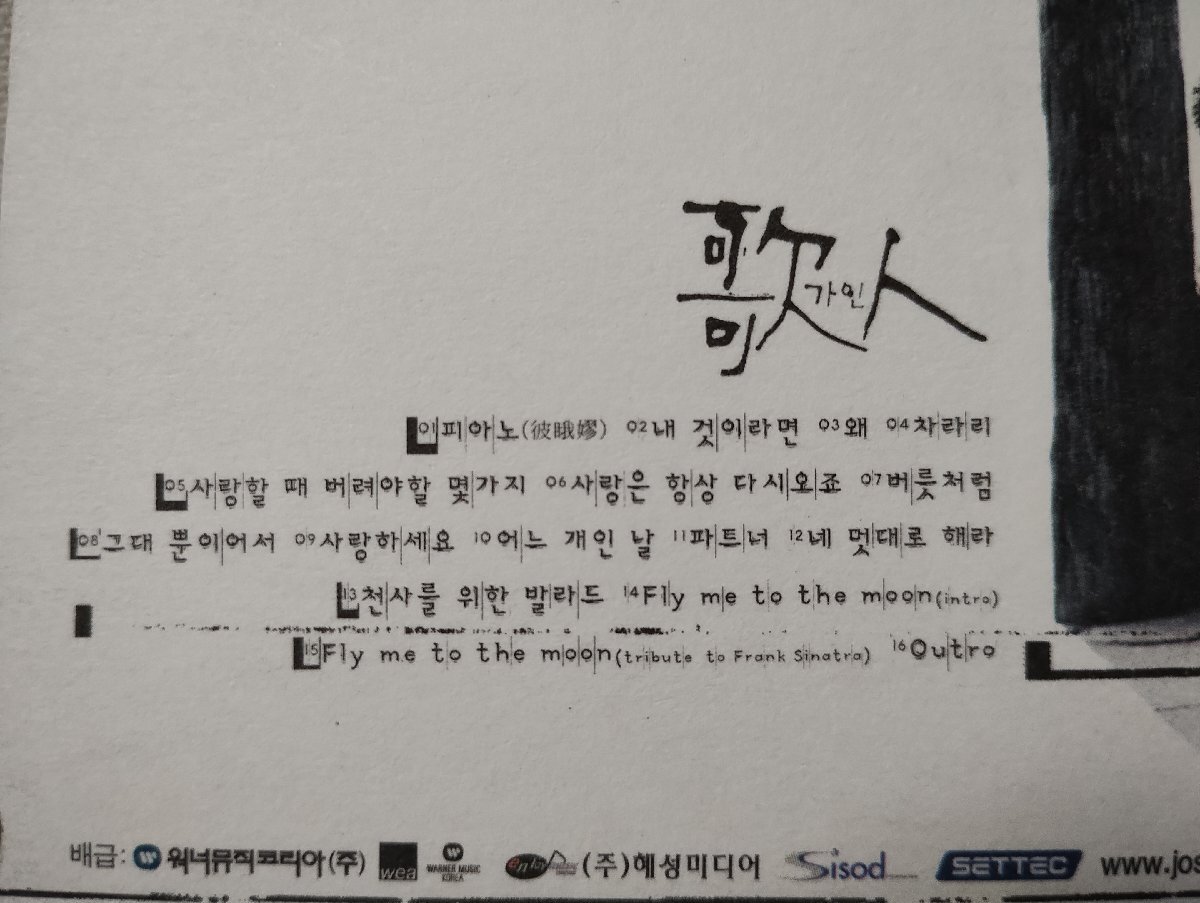 歌人
가인
01피아노(彼睋嫪) 02내 것이라면 03왜 04차라리
05사랑할 때 버려야할 몇가지 06사랑은 항상 다시오죠 07버릇처럼
08그대 뿐이어서 09사랑하세요 10어느 개인 날 11파트너 12네 멋대로 해라
13천사를 위한 발라드 14Fly me to the moon(intro)
15Fly me to the moon(tribute to Frank Sinatra) 16Outro
배급: 워너뮤직코리아(주) wea WARNER MUSIC KOREA (주)혜성미디어 Sisod SETTEC www.jos